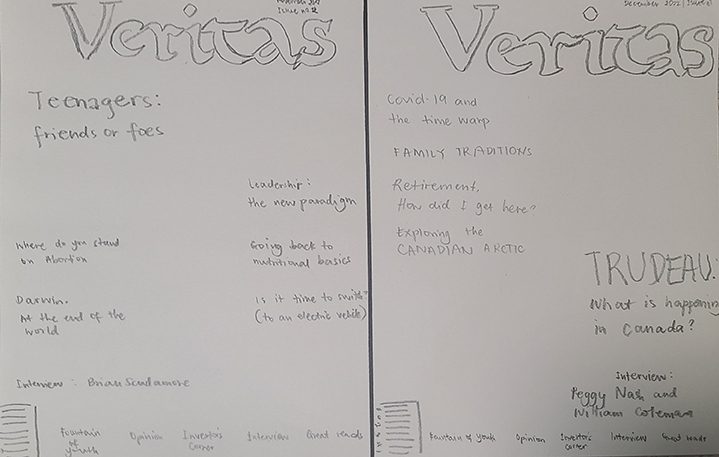 Issue no. 2
Veritas
Teenagers:
friends or foes
Leadership:
the new paradigm
Where do you stand
on Abortion
Going back to
nutritional basics
Darwin.
At the end of the
world
Is it time to switch?
(to an electric vehicle)
Interview: Brian Scudamore
Fountain
of
youth
Opinion
Investor's
Corner
Interview
Great reads
December 2022 | Issue
Veritas
Covid-19 and
the time warp
FAMILY TRADITIONS
Retirement,
How did I get here?
Exploring the
CANADIAN ARCTIC
TRUDEAU:
What is happening
in Canada?
Interview:
Peggy Nash and
William Coleman
Fountain of youth
Opinion
Investor's
corner
Interview
Great reads